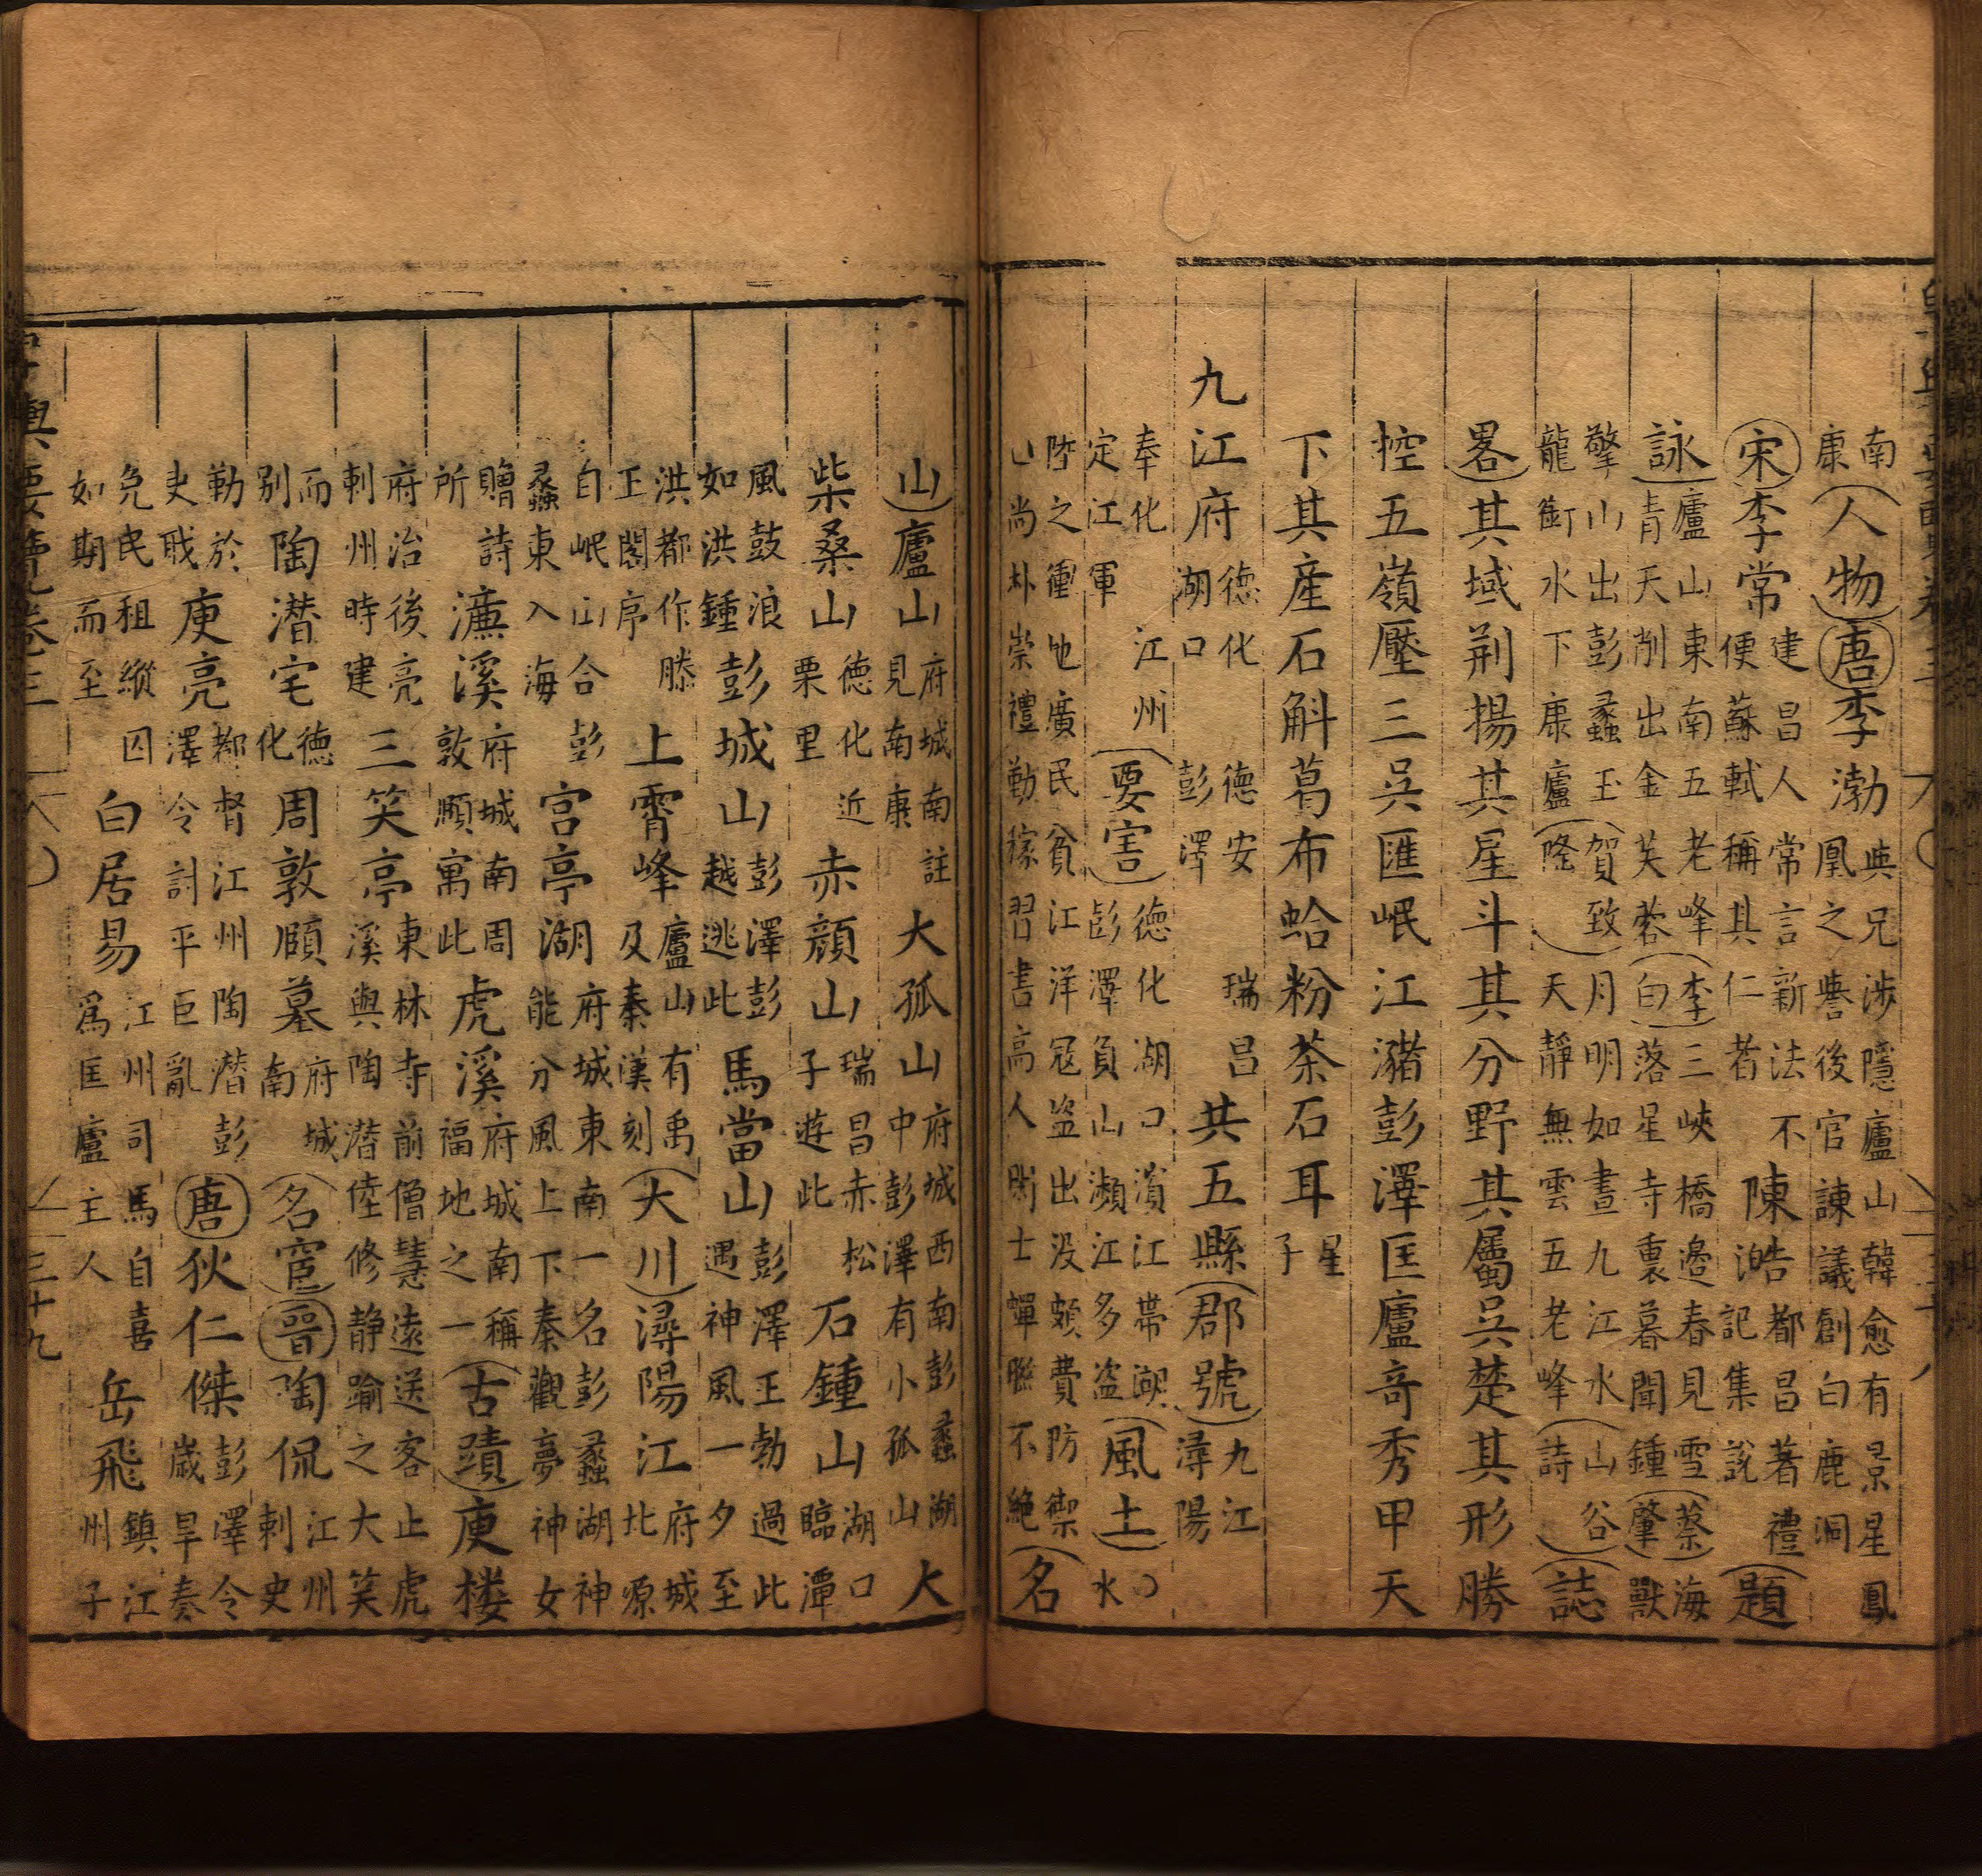 南康(人物)(唐)李渤與兄涉隱廬山韓愈有景星鳳凰之譽後官諫議創白鹿洞
(宋)李常建昌人常言新法不便蘇軾稱其仁者陳澔都昌著禮記集說(題
詠)廬山東南五老峰青天削出金芙蓉(李白)三峽橋邊春見雪落星寺裏暮聞鐘(蔡肇)海獸
擎山出彭蠡玉龍銜水下康廬(賀致隆)月明如晝九江水天靜無雲五老峰(山谷詩)(誌
畧)其域荊揚其星斗其分野其屬吳楚其形勝
控五嶺壓三吳匯岷江瀦彭澤匡廬奇秀甲天
下其產石斛葛布蛤粉茶石耳星子
九江府德化德安瑞昌湖口彭澤共五縣(郡號)九江潯陽
奉化江州定江軍(要害)德化湖口濱江帶湖彭澤負山瀕江多盜(風土)水
陸之衝地廣民貧江洋寇盜出沒頗費防禦尚朴崇禮勤稼習書高人勝士蟬聯不絕(名
山)廬山府城南註見南康大孤山府城西南彭蠡湖中彭澤有小孤山大
柴桑山德化近栗里赤顏山瑞昌赤松子遊此石鍾山湖口臨潭
風鼓浪如洪鍾彭城山彭澤彭越逃此馬當山彭澤王勃過此遇神風一夕至
洪都作滕王閣序上霄峰廬山有禹及秦漢刻(大川)潯陽江府城北源
自岷山合彭蠡東入海宮亭湖府城東南一名彭蠡湖神能分風上下秦觀夢神女
贈詩所濂溪府城南周敦頤寓此虎溪府城南稱福地之一(古蹟)庾楼
府治後亮刺州時建三笑亭東林寺前僧慧遠送客止虎溪與陶潛陸修靜踰之大笑
而別陶潛宅德化周敦頤墓府城南(名宦)(晉)陶侃江州刺史
勤於吏職庾亮都督江州陶潛彭澤令討平巨亂(唐)狄仁傑彭澤令歲旱奏
免民租縱囚如期而至白居易江州司馬自喜為匡廬主人岳飛鎮江州子
輿要覽卷三 三十九